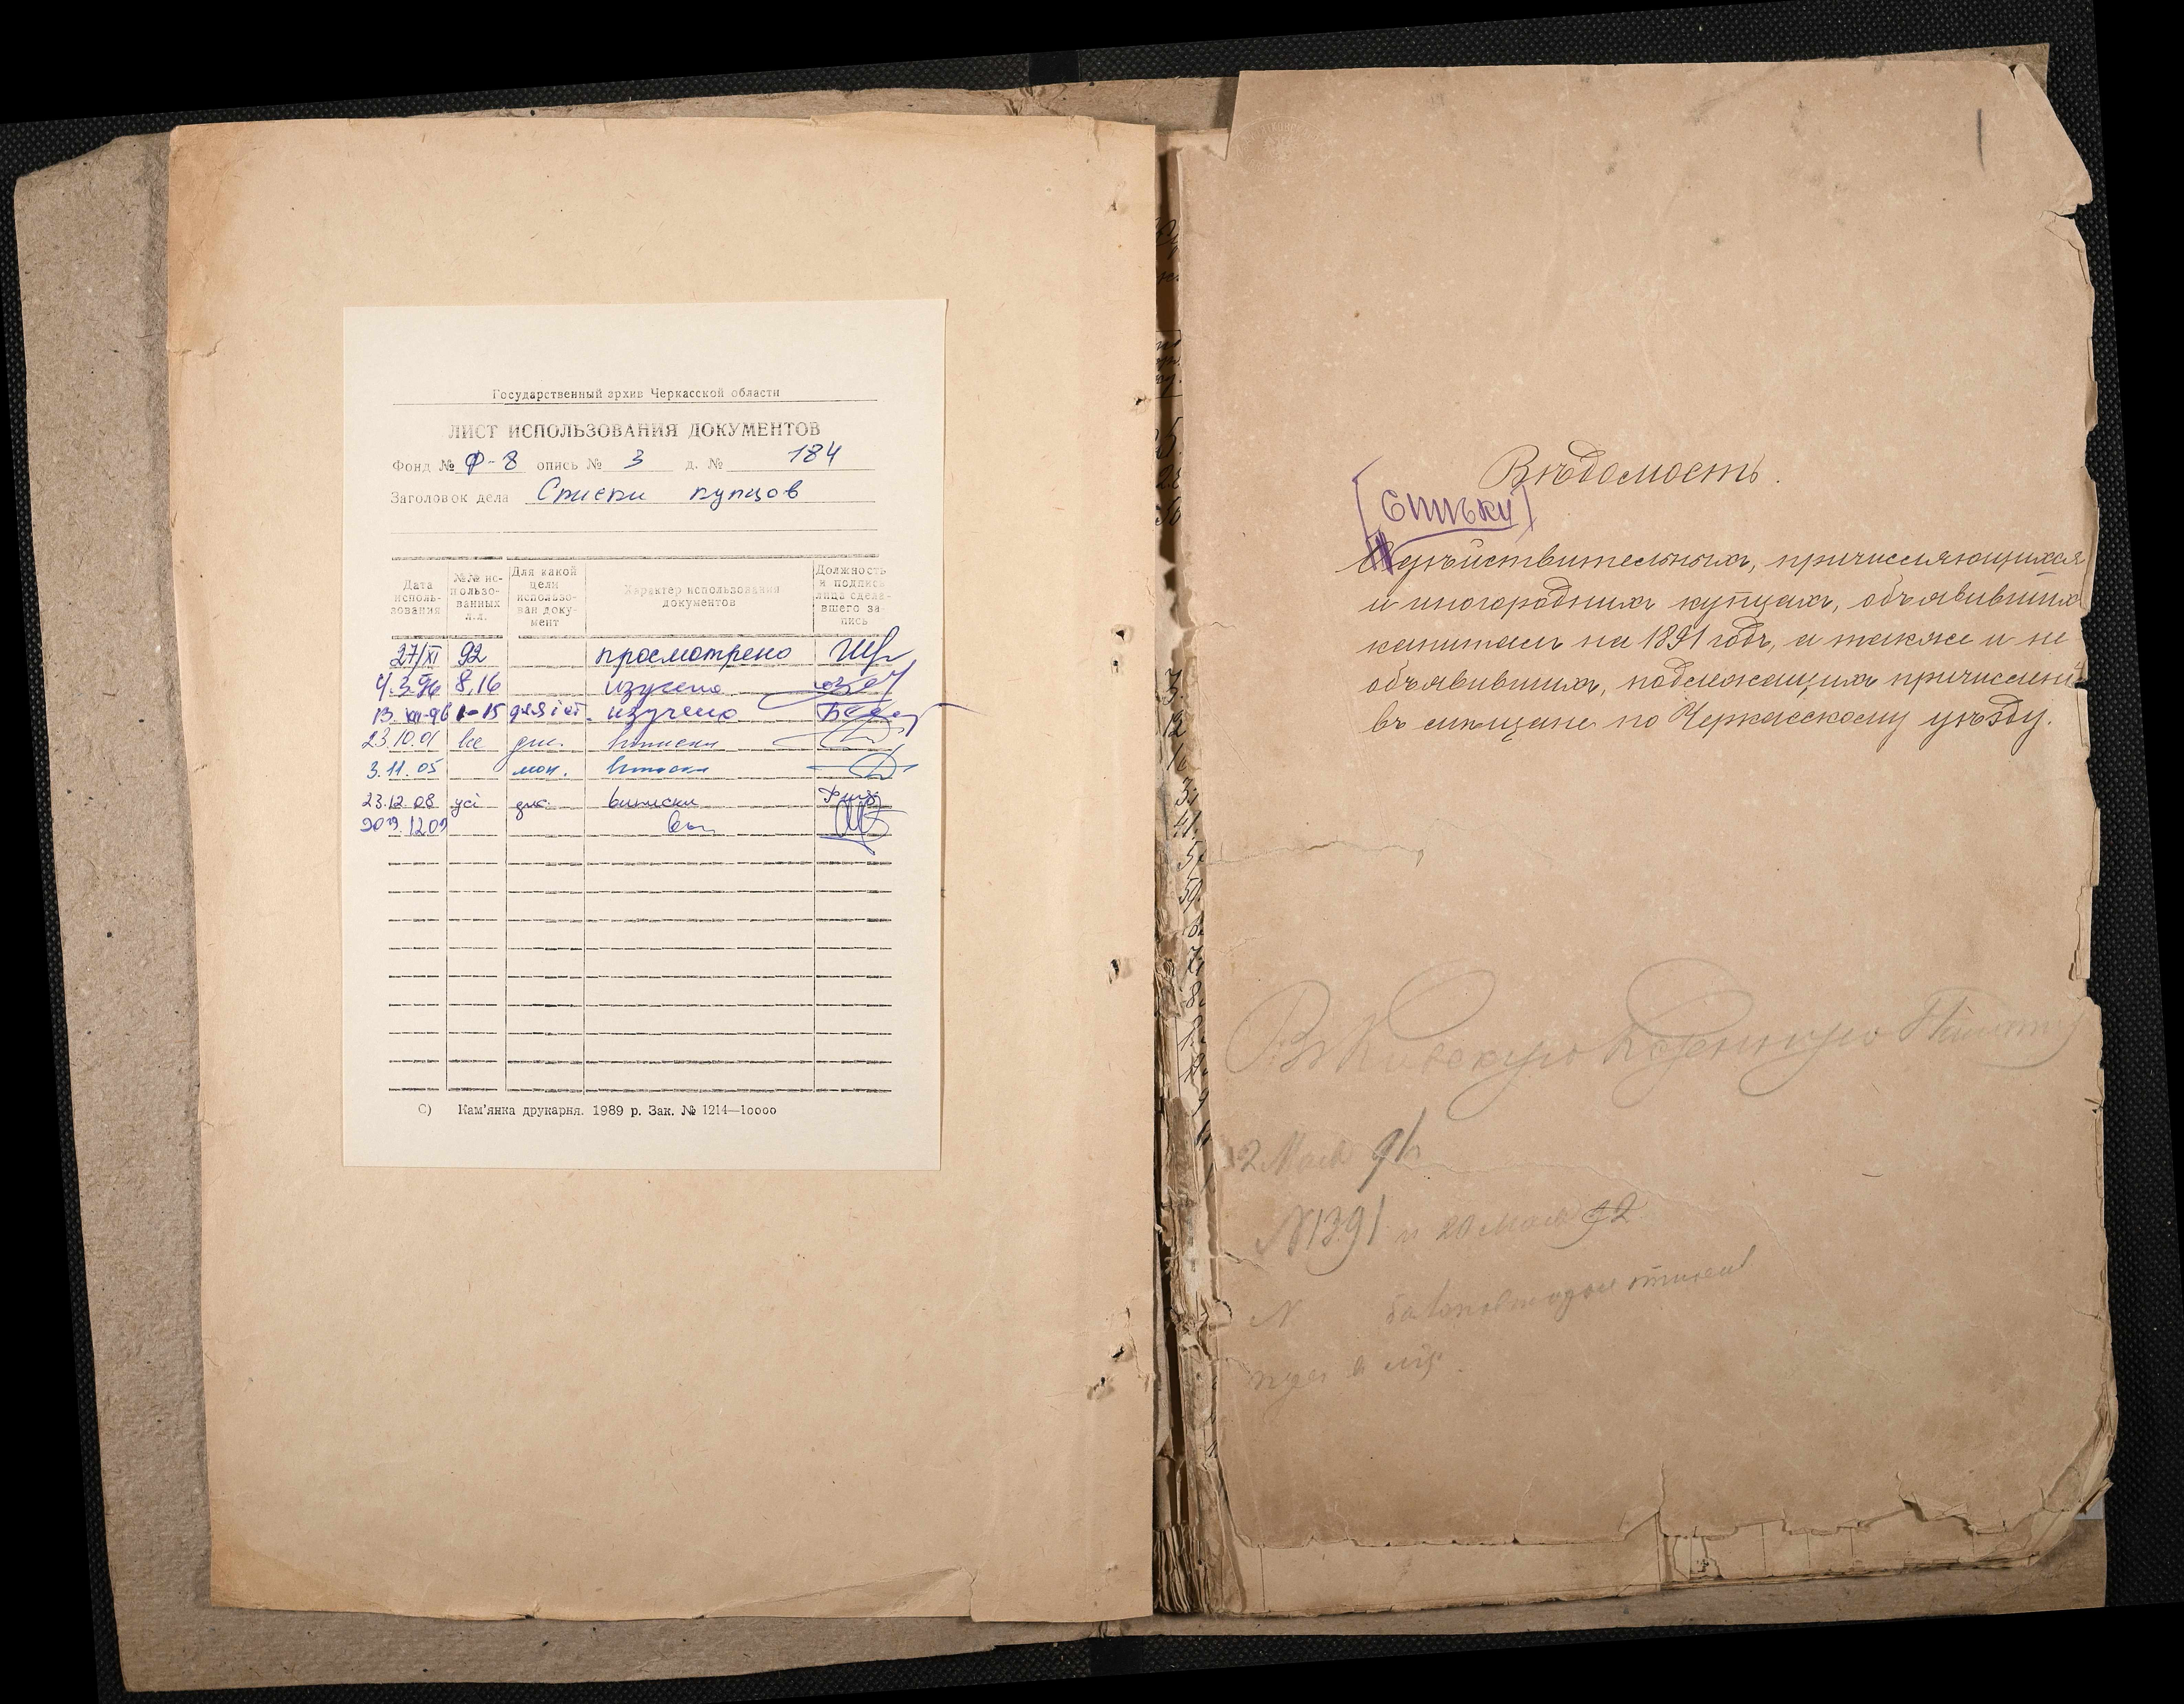 Государственный архив Черкасской области
ЛИСТ ИСПОЛЬЗОВАНИЯ ДОКУМЕНТОВ
Фонд № Ф-8 опись № 3 д. № 184
Заголовок дела Списки купцов
Дата исполь-зования
№№ ис-пользо-ванных л.л.
Для какой цели использо-ван доку-мент
Характер использования документов
Должность и подпись лица сдела-вшего за-пись
27/XI 92 просмотрено
4.3.96 8,16 изучено
13.XII-96 1-15 изучено
23.10.01 все выписки
3.11.05 выписки
23.12.08 усі виписки
С) Кам'янка друкарня. 1989 р. Зак. № 1214—10000
1
Вѣдомость.
[списки]
дѣйствительныхъ, причисляющихся
и иногороднихъ купцахъ, объявившихъ
капиталъ на 1891 годъ, а также и не
объявившихъ, подлежащихъ причислен
въ мѣщане по Черкасскому уѣзду.
Въ Кіевскую Казенную Палату
2 Мая 91
№ 1391 и 20 Мая 92
№